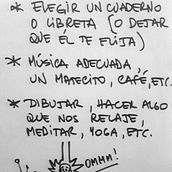 * ELEGIR UN CUADERNO
O LIBRETA (O DEJAR
QUE ÉL TE ELIJA)
* MÚSICA ADECUADA,
UN MATECITO, CAFÉ, ETC.
* DIBUJAR, HACER ALGO
QUE NOS RELAJE,
MEDITAR, YOGA, ETC.
OMMM!